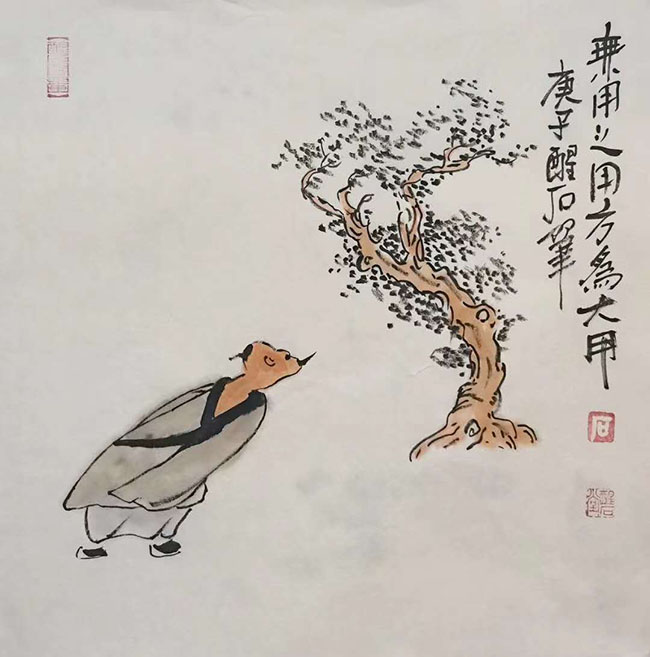 無用之用方為大用
庚子醒石筆
石